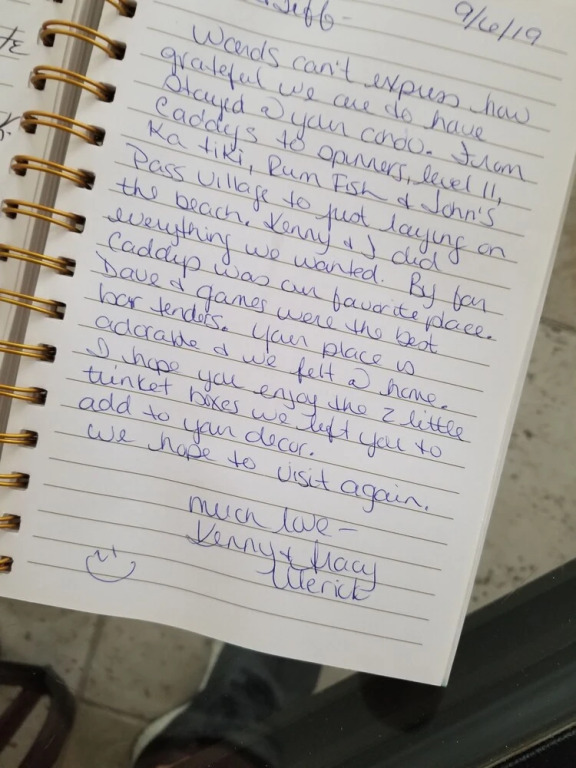 Jeff- 9/6/19
Words can't express how
grateful we are to have
stayed @ your condo. From
Caddys to spinners, level 11,
Ka tiki, Rum Fish & John's
Pass Village to just laying on
the beach. Kenny & I did
everything we wanted. By far
Caddys was our favorite place.
Dave & James were the best
bar tenders. Your place is
adorable & we felt @ home.
I hope you enjoy the 2 little
trinket boxes we left you to
add to your decor.
We hope to visit again.
much love-
Kenny & Tracy